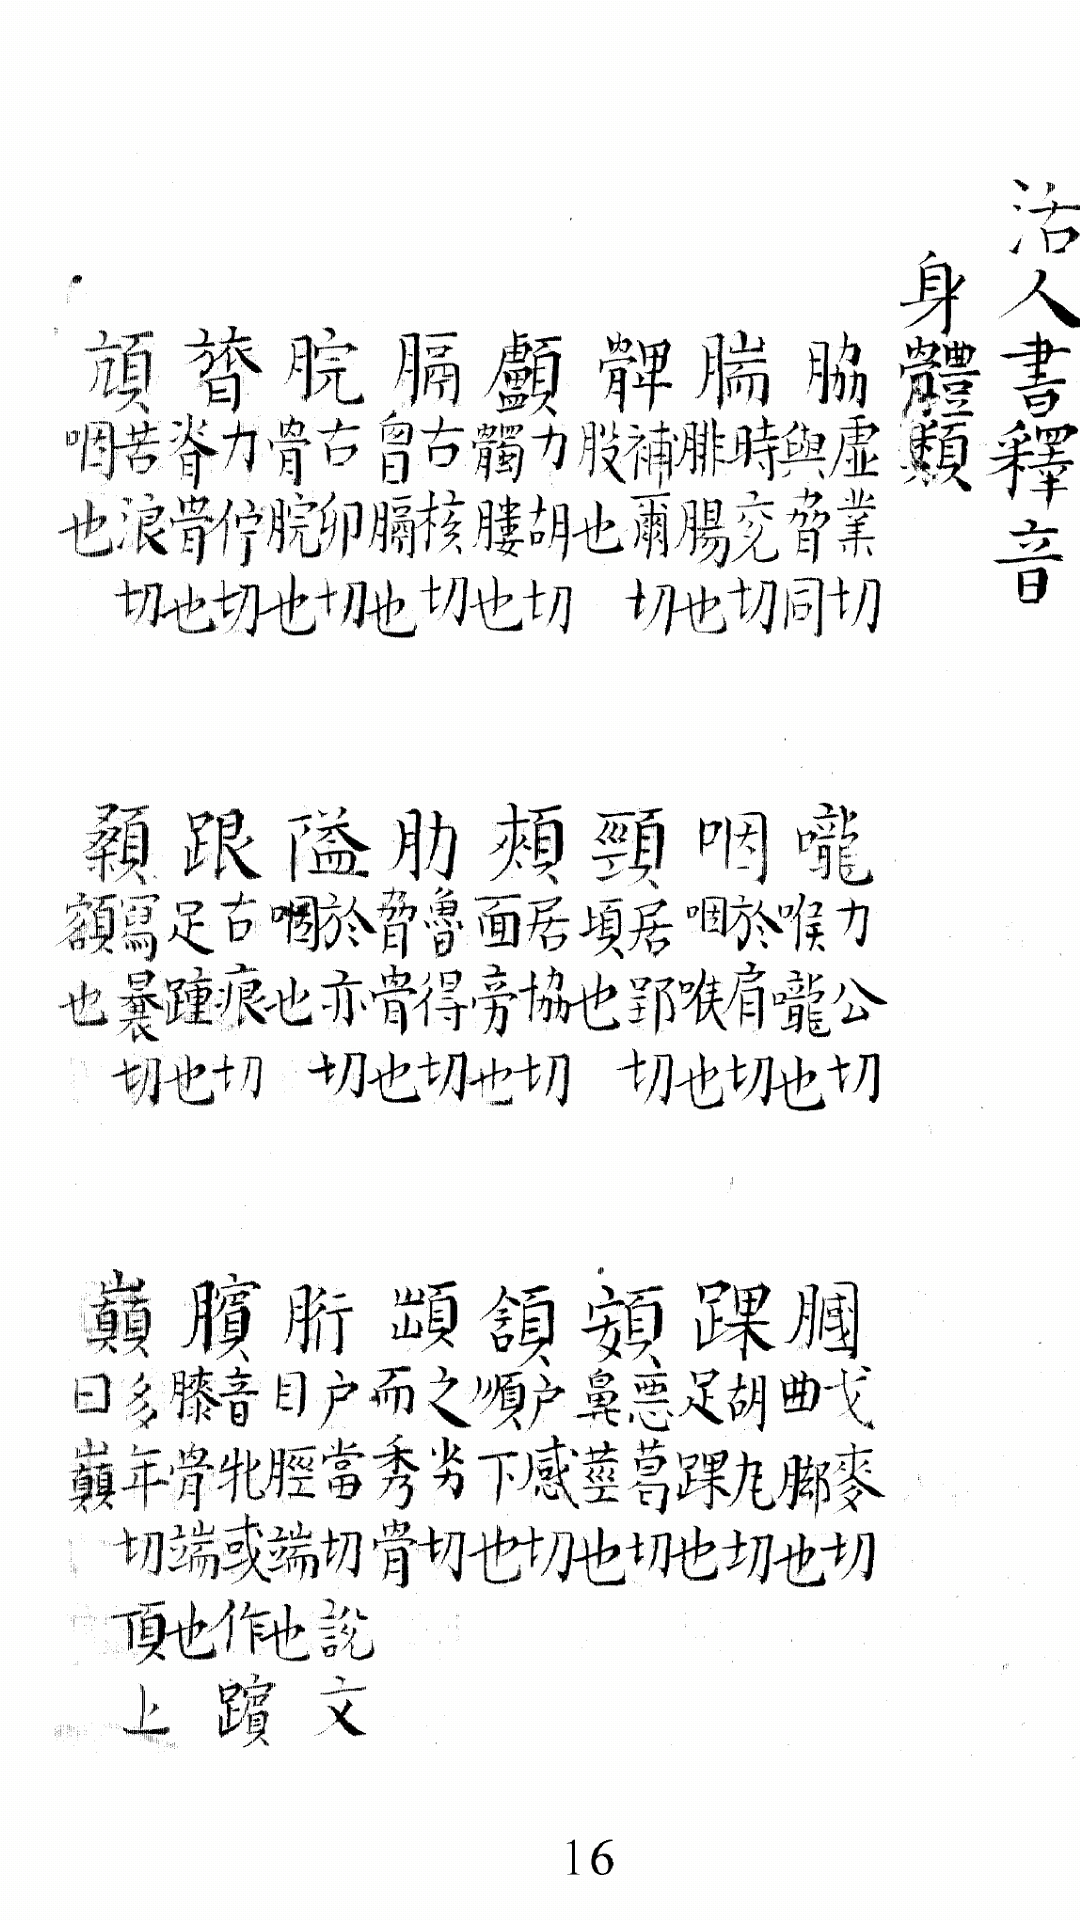 活人書釋音
身體類
脇虛業切與脅同 嚨力公切喉嚨也 膕戈麥切曲腳也
腨時兖切腓腸也 咽於肩切咽喉也 踝胡瓦切足踝也
髀補爾切股也 頸居郢切項也 頞惡葛切鼻莖也
顱力胡切髑髏也 頰居協切面旁也 頷户感切順下也
膈古核切胷膈也 肋魯得切脅骨也 䪼之劣切而秀骨
脘古卯切骨脘也 隘於亦切咽也 胻户當切說文目脛端也
膂力佇切脊骨也 跟古痕切足踵也 臏音牝或作髕膝骨端也
頏苦浪切咽也 顙寫曩切額也 巔多年切頂上曰巔
16